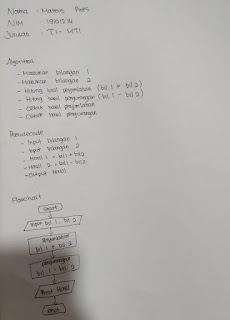 Nama : Mateus
NIM :
Jurusan : TI - MTI
Algoritma
- Masukan bilangan 1
- Masukan bilangan 2
- Hitung hasil penjumlahan (bil. 1 + bil. 2)
- Hitung hasil pengurangan (bil. 1 - bil. 2)
- Cetak hasil penjumlahan
- Cetak hasil pengurangan
Pseudocode
- Input bilangan 1
- Input bilangan 2
- Hasil 1 = bil 1 + bil 2
- Hasil 2 = bil 1 - bil 2
- Output hasil
Flowchart
Start
Input bil. 1, bil. 2
Penjumlahan
bil. 1 + bil. 2
pengurangan
bil. 1 - bil. 2
Print Hasil
End